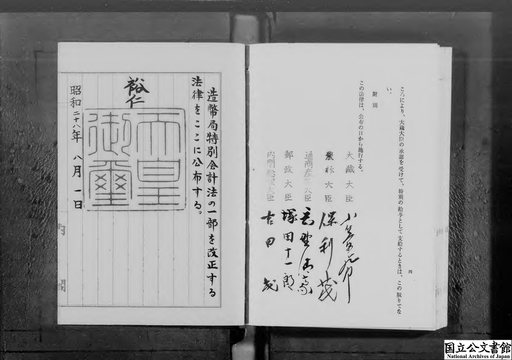 こうにより、大蔵大臣の承認を受けて、特別の給与として支給するときは、この限りでな
い。
附則
この法律は、公布の日から施行する。
四
大蔵大臣
農林大臣 保利茂
通商産業大臣
郵政大臣 塚田十一郎
内閣総理大臣 吉田茂
造幣局特別会計法の一部を改正する
法律をここに公布する。
裕仁
天皇御璽
昭和二十八年八月一日
国立公文書館
National Archives of Japan